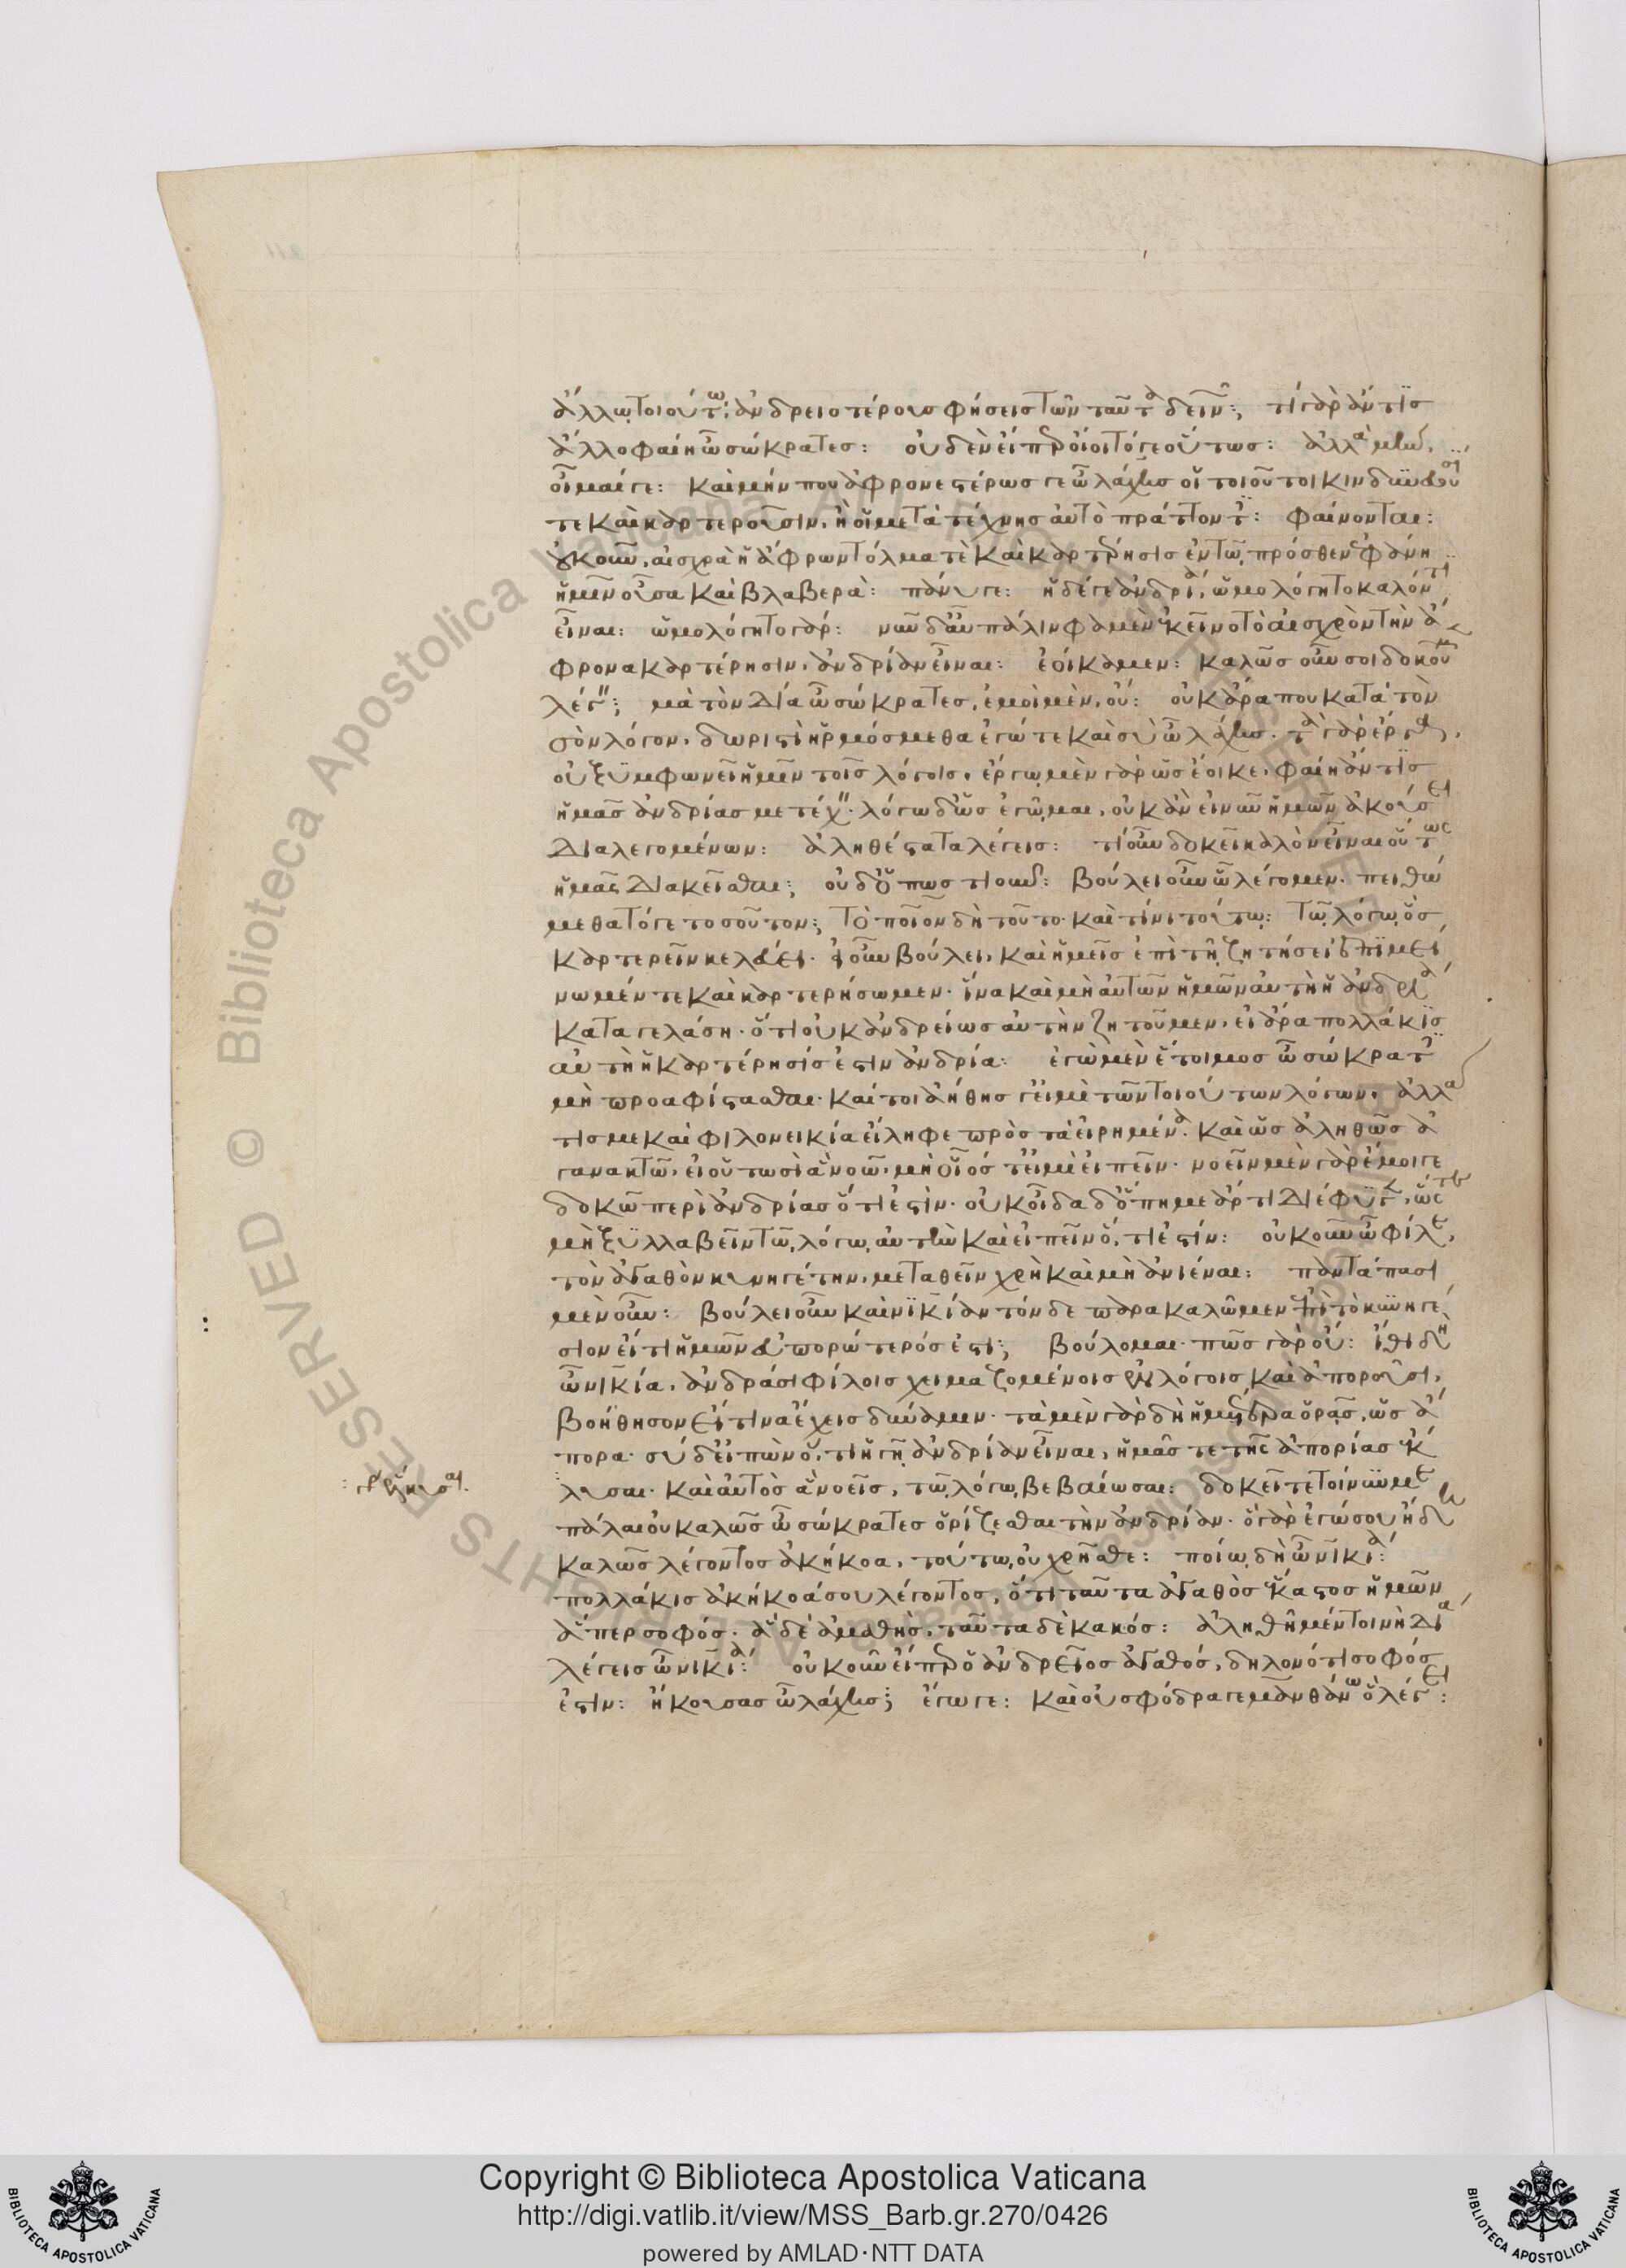 ἄλλῳ τοιούτῳ, ἀνδρειοτέρους φήσεις τῶν ταῦτα δεινῶν; τί γὰρ ἄν τις
ἄλλο φαίη ὦ σώκρατες: οὐδὲν εἴπερ οἴοιτό γε οὕτως: ἀλλὰ μὴν
οἶμαί γε: καὶ μήν που ἀφρονεστέρως γε ὦ λάχης οἱ τοιοῦτοι κινδυνεύουσί
τε καὶ καρτεροῦσιν, ἢ οἱ μετὰ τέχνης αὐτὸ πράττοντες: φαίνονται:
οὐκοῦν, αἰσχρὰ ἡ ἄφρων τόλμα τὲ καὶ καρτέρησις ἐν τῷ πρόσθεν ἐφάνη
ἡμῖν οὖσα καὶ βλαβερὰ: πάνυ γε: ἡ δέ γε ἀνδρία, ὡμολόγητο καλόν τι
εἶναι: ὡμολόγητο γάρ: νῦν δ' αὖ πάλιν φαμὲν ἐκεῖνο τὸ αἰσχρὸν τὴν ἄ
φρονα καρτέρησιν, ἀνδρίαν εἶναι: ἐοίκαμεν: καλῶς οὖν σοι δοκοῦμεν
λέγειν; μὰ τὸν Δία ὦ σώκρατες, ἐμοὶ μὲν, οὔ: οὐκ ἄρα που κατὰ τὸν
σὸν λόγον, δωριστὶ ἡρμόσμεθα ἐγώ τε καὶ σὺ ὦ λάχης. τὰ γὰρ ἔργα,
οὐ ξυμφωνεῖ ἡμῖν τοῖς λόγοις. ἔργῳ μὲν γὰρ ὡς ἔοικε, φαίη ἄν τις
ἡμᾶς ἀνδρίας μετέχειν. λόγω δ' ὡς ἐγᾦμαι, οὐκ ἂν εἰ νῦν ἡμῶν ἀκούσει
Διαλεγομένων: ἀληθέστατα λέγεις: τί οὖν δοκεῖ καλὸν εἶναι οὕτως
ἡμᾶς Διακεῖσθαι; οὐδ' ὁπωστιοῦν: βούλει οὖν ᾧ λέγομεν. πειθώ
μεθα τό γε τοσοῦτον; τὸ ποῖον δὴ τοῦτο. καὶ τίνι τούτῳ; τῷ λόγῳ, ὃς
καρτερεῖν κελεύει. εἰ οὖν βούλει, καὶ ἡμεῖς ἐπὶ τῇ ζητήσει ἐπιμεί
νωμέν τε καὶ καρτερήσωμεν. ἵνα καὶ μὴ αὐτῶν ἡμῶν αὐτὴ ἡ ἀνδρία
καταγελάση. ὅτι οὐκ ἀνδρείως αὐτὴν ζητοῦμεν, εἰ ἄρα πολλάκις
αὐτὴ ἡ καρτέρησίς ἐστιν ἀνδρία: ἐγὼ μὲν ἕτοιμος ὦ σώκρατες
μὴ προαφίστασθαι. καίτοι ἀήθης γ' εἰμὶ τῶν τοιούτων λόγων, ἀλλά
τίς με καὶ φιλονεικία εἴληφε πρὸς τὰ εἰρημένα. καὶ ὡς ἀληθῶς ἀ
γανακτῶ, εἰ οὑτωσὶ ἃ νοῶ, μὴ οἷός τ' εἰμὶ εἰπεῖν. νοεῖν μὲν γὰρ ἔμοιγε
δοκῶ περὶ ἀνδρίας ὅτι ἐστὶν. οὐκ οἶδα δ' ὅπη με ἄρτι Διέφυγεν, ὥστε
μὴ ξυλλαβεῖν τῷ λόγῳ αὐτὴν καὶ εἰπεῖν ὅ, τι ἐστίν: οὐκοῦν ὦ φίλε,
τὸν ἀγαθὸν κυνηγέτην, μεταθεῖν χρὴ καὶ μὴ ἀνιέναι: πανταπασι
μὲν οὖν: βούλει οὖν καὶ νικίαν τόνδε παρακαλῶμεν ἐπὶ τὸ κυνηγέ
σιον εἴ τι ἡμῶν εὐπορώτερός ἐστι; βούλομαι. πῶς γὰρ οὔ: ἴθι δὴ
ὦ νικία, ἀνδράσι φίλοις χειμαζομένοις ἐν λόγοις, καὶ ἀποροῦσι,
βοήθησον εἴ τινα ἔχεις δύναμιν. τὰ μὲν γὰρ δὴ ἡμέτερα ὁρᾷς, ὡς ἄ
πορα. σὺ δ' εἰπὼν ὅ, τι ἡγῇ ἀνδρίαν εἶναι, ἡμᾶς τε τῆς ἀπορίας ἔκ
λυσαι. καὶ αὐτὸς ἃ νοεῖς, τῷ λόγῳ, βεβαίωσαι: δοκεῖτε τοίνυν με
πάλαι οὐ καλῶς ὦ σώκρατες ὁρίζεσθαι τὴν ἀνδρίαν. ὃ γὰρ ἐγώ σου ἤδη
καλῶς λέγοντος ἀκήκοα, τούτῳ, οὐ χρῆσθε: ποίῳ δὴ ὦ νικία:
πολλάκις ἀκήκοά σου λέγοντος, ὅτι ταῦτα ἀγαθὸς ἕκαστος ἡμῶν
ἅπερ σοφός. ἃ δὲ ἀμαθὴς, ταῦτα δὲ κακός: ἀληθῆ μέντοι νὴ Δία
λέγεις ὦ νικία: οὐκοῦν εἴπερ ὁ ἀνδρεῖος ἀγαθός, δηλονότι σοφός
ἐστιν: ἤκουσας ὦ λάχης; ἔγωγε: καὶ οὐ σφόδρα γε μανθάνω ὃ λέγει:
Copyright © Biblioteca Apostolica Vaticana
http://digi.vatlib.it/view/MSS_Barb.gr.270/0426
powered by AMLAD·NTT DATA